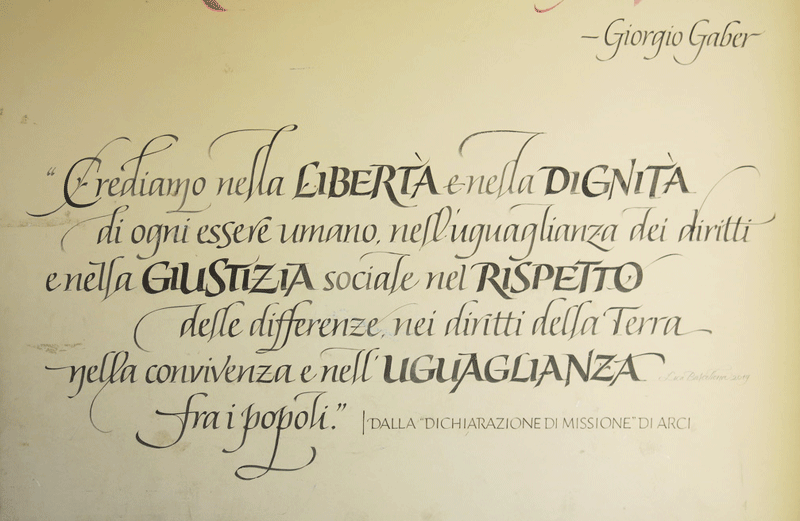 – Giorgio Gaber
“Crediamo nella LIBERTÀ e nella DIGNITÀ
di ogni essere umano, nell'uguaglianza dei diritti
e nella GIUSTIZIA sociale nel RISPETTO
delle differenze, nei diritti della Terra
nella convivenza e nell' UGUAGLIANZA
fra i popoli.” DALLA “DICHIARAZIONE DI MISSIONE” DI ARCI